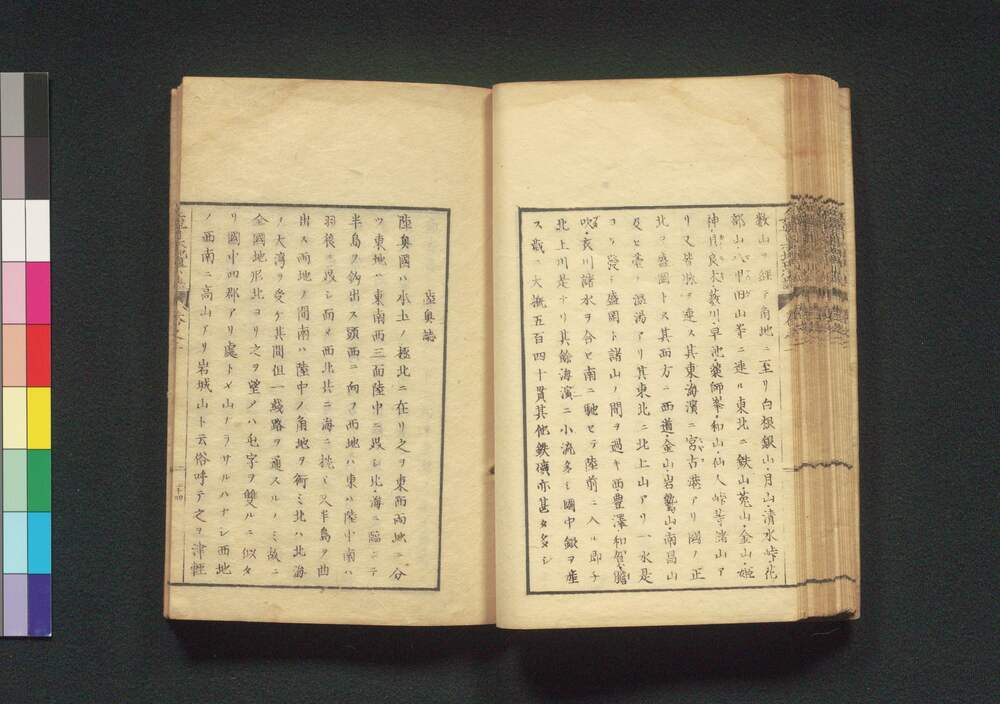 數山ヲ經テ角地ニ至リ白根銀山月山清水峠花
部山八甲田山等ニ連ル東北ニ鉄山菟山金山姫
神月良木薮川早池薬師峯和山仙人峠等諸山ア
リ又岑脉ヲ連ス其東海濱ニ宮古港アリ國ノ正
北ヲ盛岡トス其面方ニ西道金山岩鷲山南昌山
及ヒ臺ノ温湯アリ其東北ニ北上山アリ一水是
コヽニ發シ盛岡ト諸山ノ間ヲ過キ西豊澤和賀膽
吹衣川諸水ヲ合セ南ニ馳セテ陸前ニ入ル即チ
北上川是ナリ其餘海濱ニ小流多シ國中鍬ヲ産
ス戴ニ大概五百四十貫其他鉄礦亦甚タ多シ
陸奥誌
陸奥國ハ本土ノ極北ニ在リ之ヲ東西両地ニ分
ツ東地ハ東南西三面陸中ニ界シ北海ニ臨ミテ
半島ヲ釣出ス頭西ニ向フ西地ハ東ハ陸中南ハ
羽後ニ界シ而メ西北共ニ海ニ枕ミ又半島ヲ曲
出ス両地ノ間南ハ陸中ノ角地ヲ銜ミ北ハ北海
ノ大湾ヲ受ケ其間但一綫路ヲ通スルノミ故ニ
全國地形北ヨリ之ヲ望メハ凸字ヲ雙ルニ似タ
リ國中四郡アリ處トメ山ナラサルハナシ西地
ノ西南ニ高山アリ岩城山ト云俗呼テ之ヲ津軽